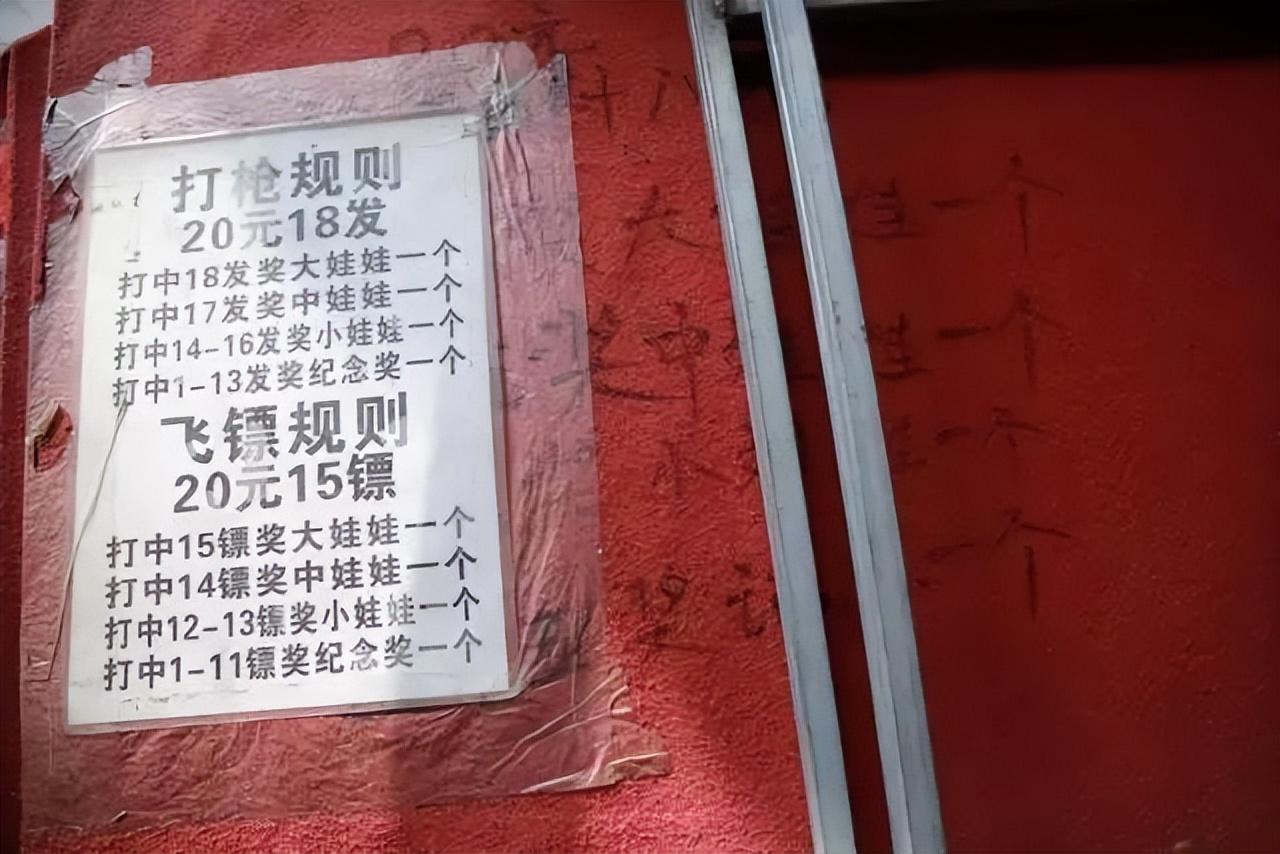 打枪规则
20元18发
打中18发奖大娃娃一个
打中17发奖中娃娃一个
打中14-16发奖小娃娃一个
打中1-13发奖纪念奖一个
飞镖规则
20元15镖
打中15镖奖大娃娃一个
打中14镖奖中娃娃一个
打中12-13镖奖小娃娃一个
打中1-11镖奖纪念奖一个
十八
大 娃一个
奖中 娃一个
小 一个
一个